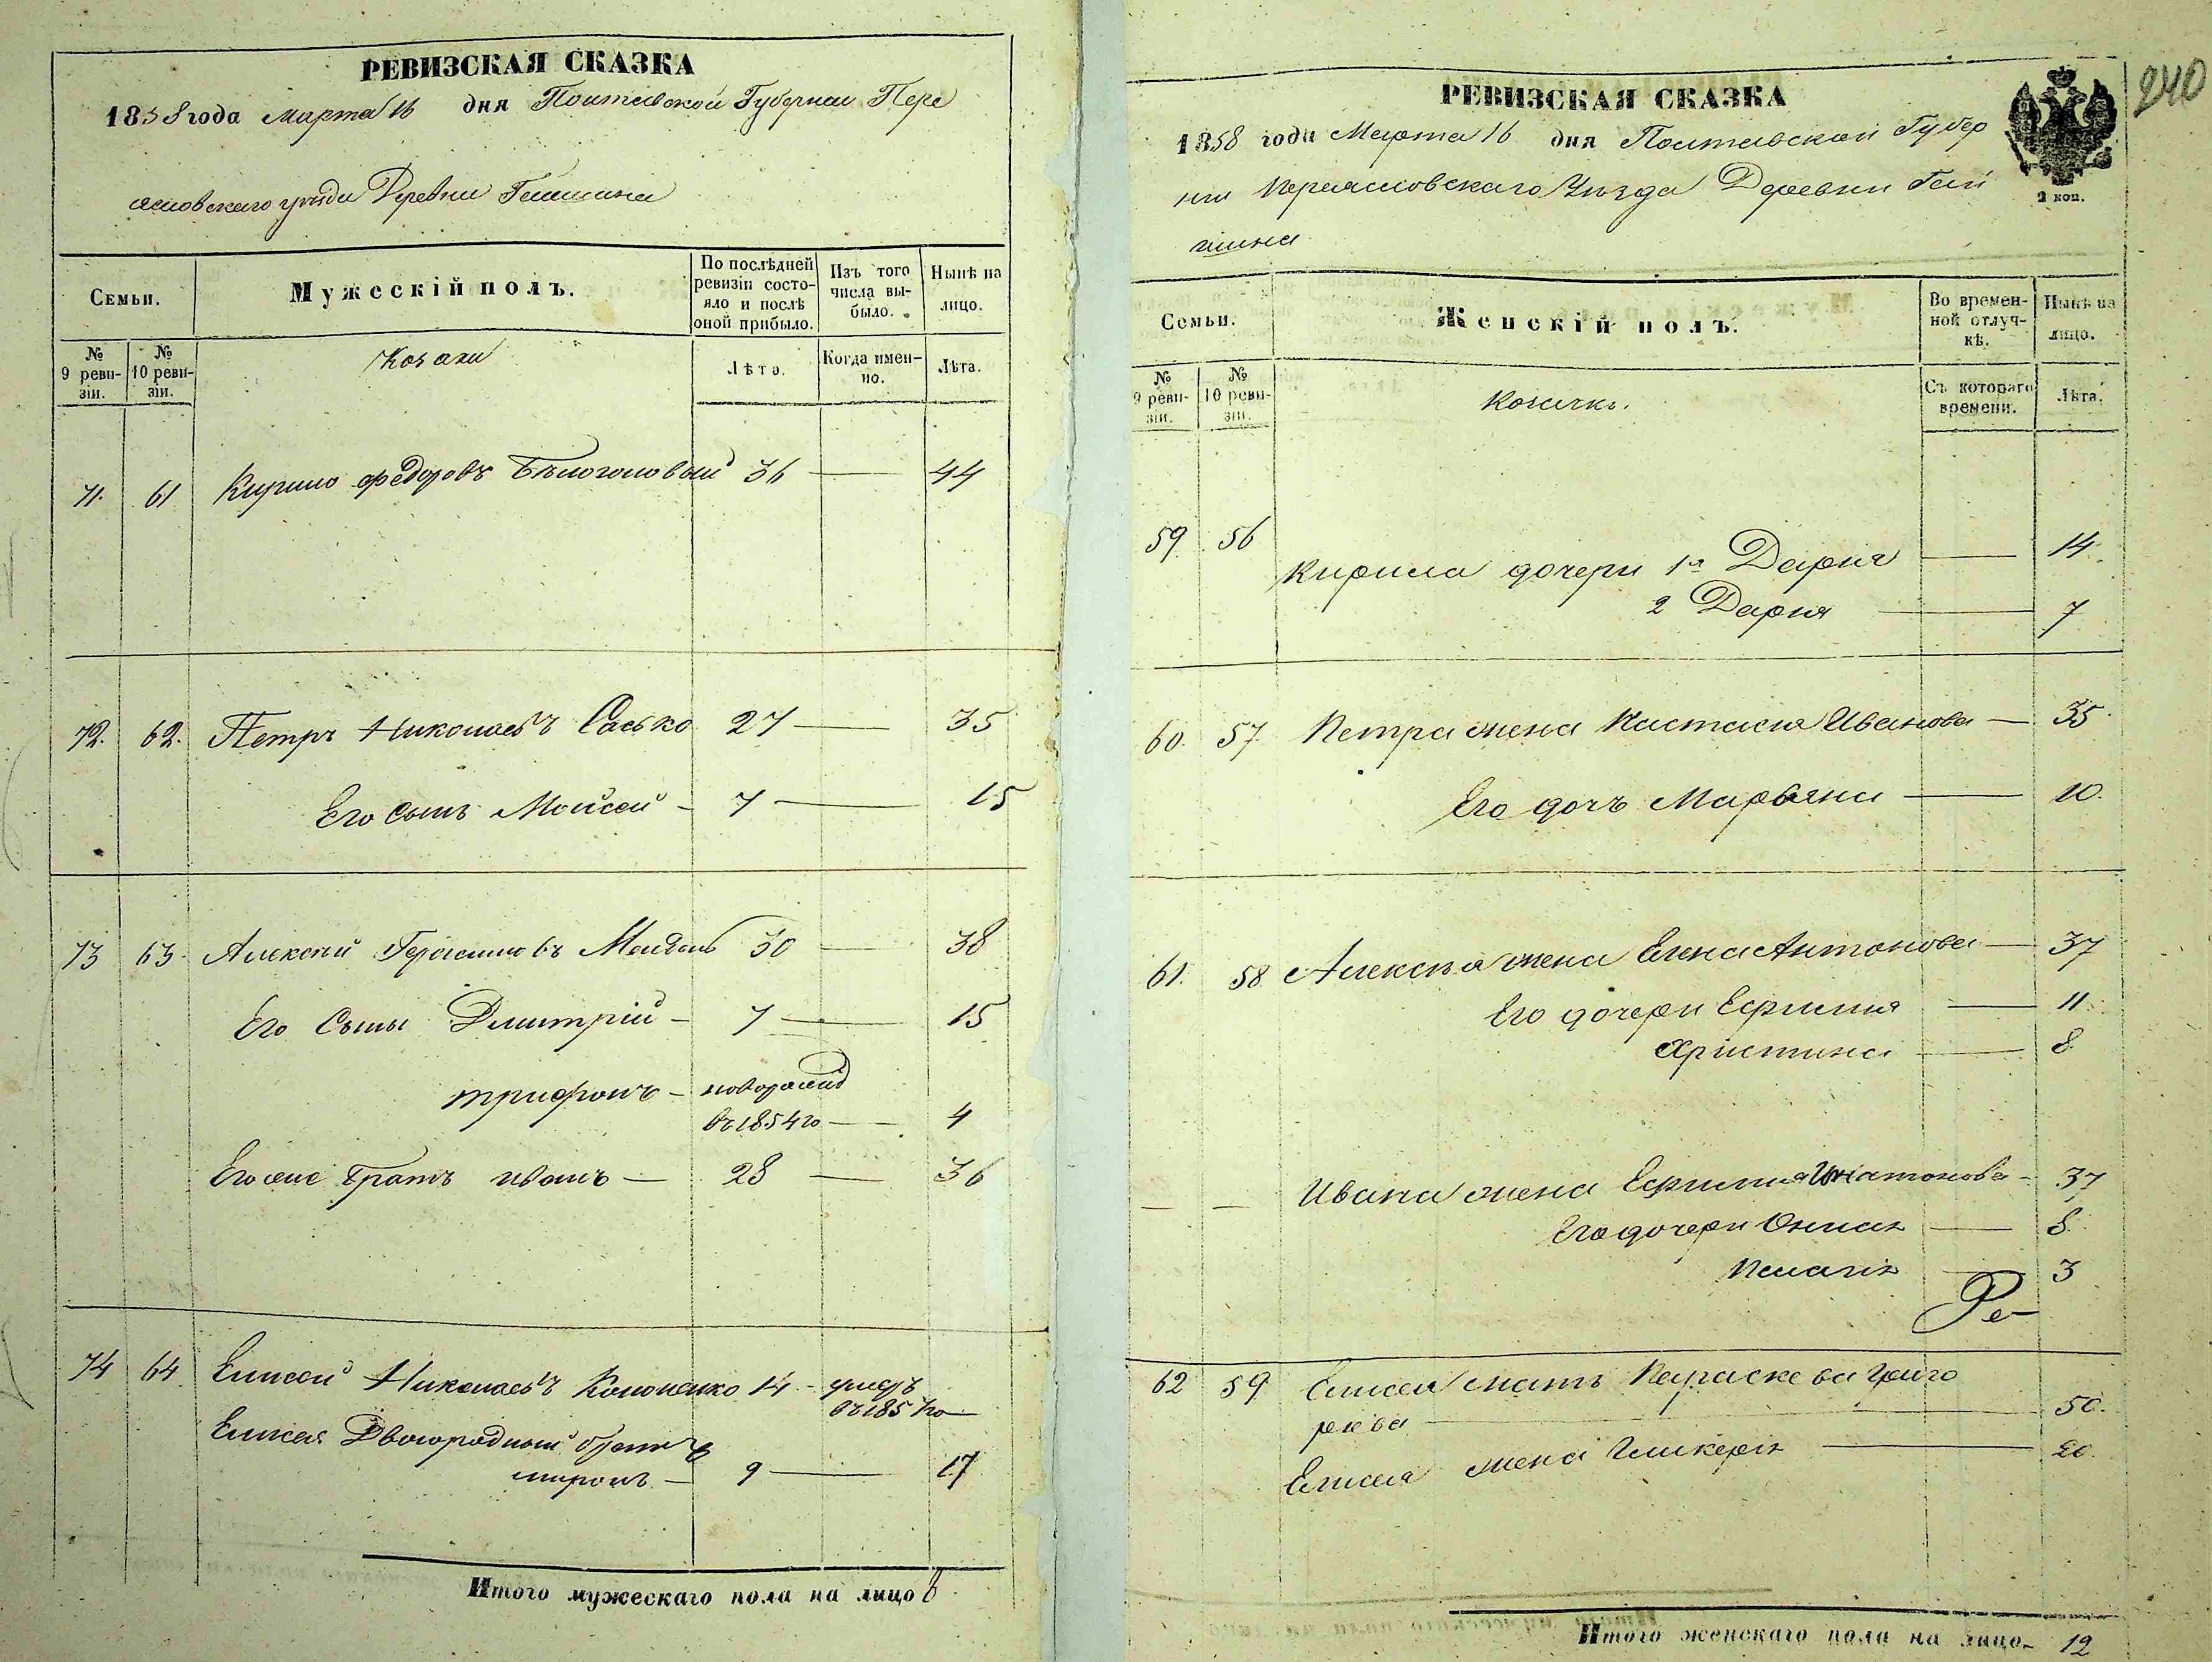 РЕВИЗСКАЯ СКАЗКА
1858 года Марта 16 дня Полтавской Губернии Пере
яславскаго уезда Деревни
Семьи.
Мужескій полъ.
По послѣдней ревизіи состояло и послѣ оной прибыло.
Изъ того числа выбыло.
Нынѣ на лицо.
№ 9 ревизіи.
№ 10 ревизіи.
Козаки
Лѣта.
Когда именно.
Лѣта.
71. 61 Кирило Федоровъ Бѣлоголовый 36 — 44
72. 62. Петръ Николаевъ Сасько 27 — 35
Его сынъ Моисей — 7 — 15
73 63. Алексѣй Герасимовъ 30 — 38
Его Сыны Дмитрій — 7 — 15
Трифонъ — новорожд
въ 1854 го — 4
Его же братъ Иванъ — 28 — 36
74 64 Елисей Николаевъ Кононенко 14 — умеръ
въ 185 го
Елисея Двоюродный братъ
Миронъ — 9 — 17
Итого мужескаго пола на лицо 6
240
РЕВИЗСКАЯ СКАЗКА
1858 года Марта 16 дня Полтавской Губер
ніи Переяславскаго Уѣзда Деревни Гей
шина
2 коп.
Семьи.
Женскій полъ.
Во временной отлучкѣ.
Нынѣ на лицо.
№ 9 ревизіи.
№ 10 ревизіи.
Козачки.
Съ котораго времени.
Лѣта.
59. 56
Кирила дочери 1я Дарія — 14.
2 Дарія — 7
60. 57 Петра жена Настасія Иванова — 35.
Его дочь Марьяна — 10.
61. 58 Алексѣя жена Елена Антонова — 37
Его дочери Ефимія — 11.
Христина — 8.
— — Ивана жена Ефимія — 37
Его дочери — 8.
Пелагія — 3
Ре—
62 59 Елисея мать Параскева Григо
рьева — 50.
Елисея жена Гликерія — 20.
Итого женскаго пола на лицо — 12